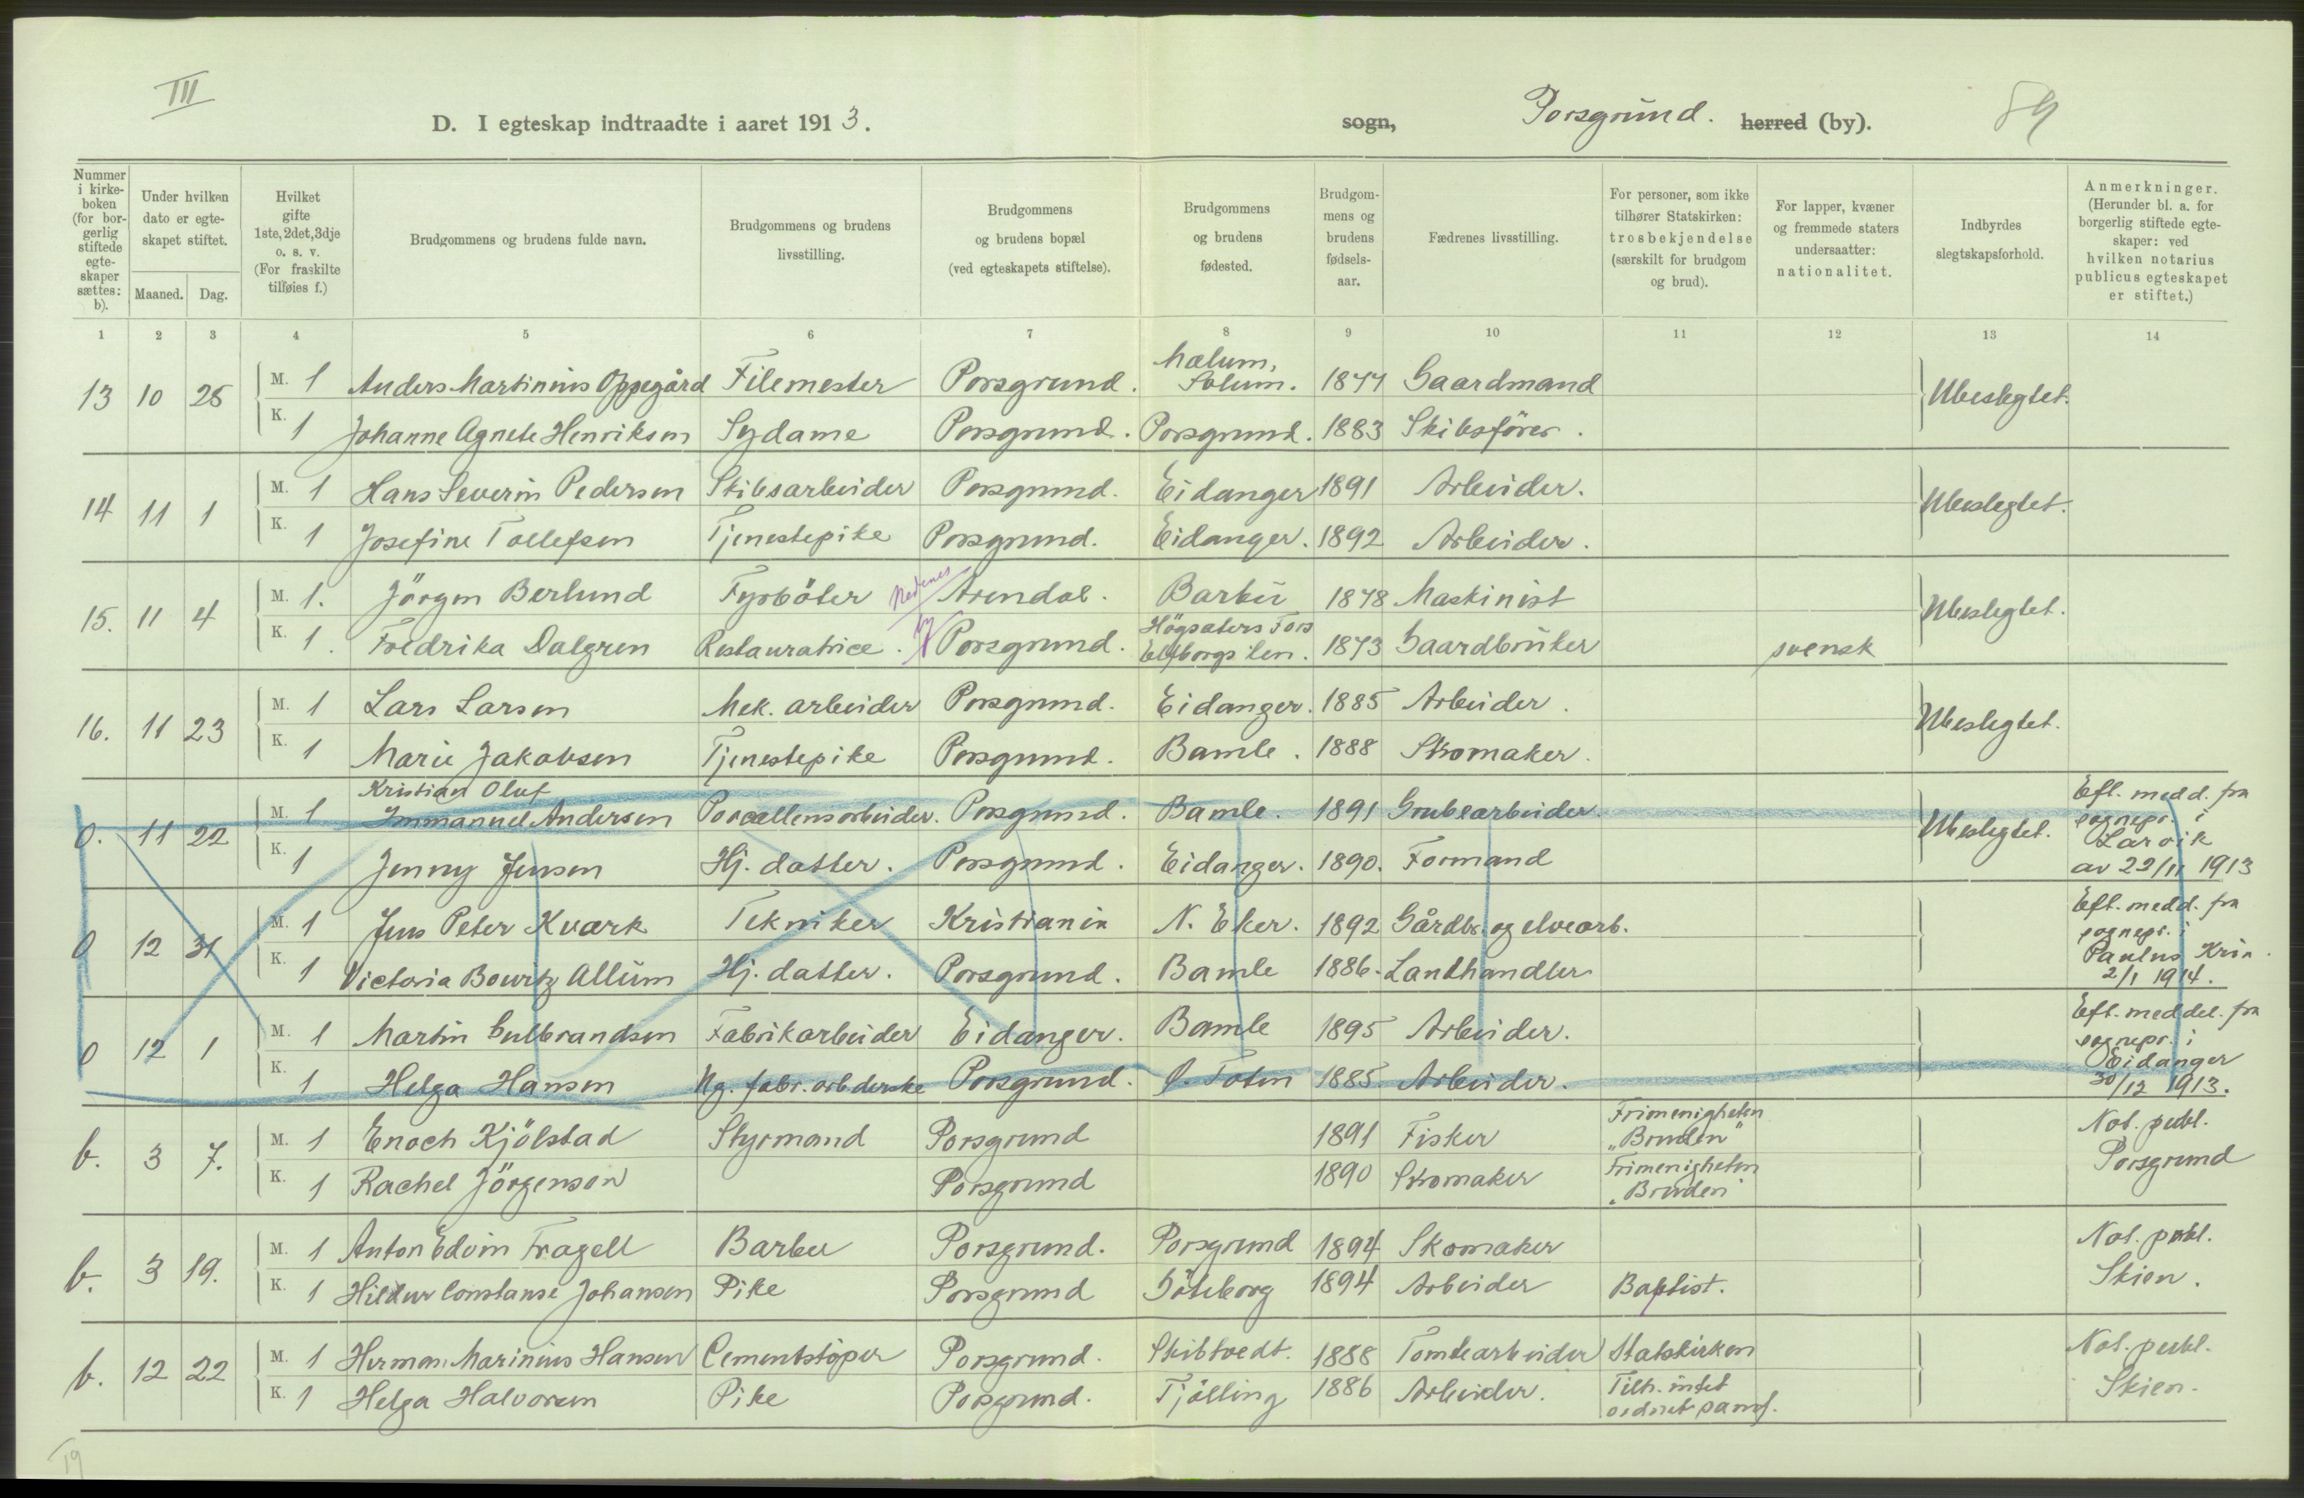 III
D. I egteskap indtraadte i aaret 1913.
sogn, Porsgrund. herred (by).
89
Nummer i kirkeboken (for borgerlig stiftede egteskaper sættes: b).
Under hvilken dato er egteskapet stiftet.
Maaned. Dag.
Hvilket gifte 1ste, 2det, 3dje o. s. v. (For fraskilte tilføies f.)
Brudgommens og brudens fulde navn.
Brudgommens og brudens livsstilling.
Brudgommens og brudens bopæl (ved egteskapets stiftelse).
Brudgommens og brudens fødested.
Brudgommens og brudens fødselsaar.
Fædrenes livsstilling.
For personer, som ikke tilhører Statskirken: trosbekjendelse (særskilt for brudgom og brud).
For lapper, kvæner og fremmede staters undersaatter: nationalitet.
Indbyrdes slegtskapsforhold.
Anmerkninger. (Herunder bl. a. for borgerlig stiftede egteskaper: ved hvilken notarius publicus egteskapet er stiftet.)
1 2 3 4 5 6 7 8 9 10 11 12 13 14
13 10 25 M. 1 Anders Martinius Oppegård Filemester Porsgrund. Mælum, Solum. 1877 Gaardmand Ubeslegtet.
K. 1 Johanne Agnete Henriksen Sydame Porsgrund. Porsgrund. 1883 Skibsfører.
14 11 1 M. 1 Hans Severin Pedersen Skibsarbeider Porsgrund. Eidanger 1891 Arbeider. Ubeslegtet.
K. 1 Josefine Tollefsen Tjenestepike Porsgrund. Eidanger. 1892 Arbeider.
15. 11 4 M. 1. Jörgen Berlund Fyrböter Nedenes Arendal. Barbu 1878 Maskinist Ubeslegtet.
K. 1. Fredrika Dalgren Restauratrice. by Porsgrund. Högsäters Fors Elfborgs len. 1873 Gaardbruker svensk
16. 11 23 M. 1 Lars Larsen Mek. arbeider Porsgrund. Eidanger. 1885 Arbeider. Ubeslegtet.
K. 1 Marie Jakobsen Tjenestepike Porsgrund. Bamle. 1888 Skomaker.
0. 11 22 M. 1 Kristian Oluf Immanuel Andersen Porcellensarbeider. Porsgrund. Bamle. 1891 Grubearbeider. Ubeslegtet. Eft. medd. fra sognepr. i Larvik av 22/11 1913
K. 1 Jenny Jensen Hj. datter. Porsgrund. Eidanger. 1890. Formand
0 12 31 M. 1 Jens Peter Kværk Tekniker Kristiania N. Eker. 1892 Gårdbr. og elvearb. Eft. medd. fra sognepr. i Paulus Kria. 2/1 1914.
K. 1 Victoria Bowitz Allum Hj. datter. Porsgrund. Bamle 1886. Landhandler
0 12 1 M. 1 Martin Gulbrandsen Fabrikarbeider Eidanger. Bamle 1895 Arbeider. Eft. meddel. fra sognepr. i Eidanger 30/12 1913.
K. 1 Helga Hansen Ng. fabr. arbderske Porsgrund. Ø. Toten 1885 Arbeider.
b. 3 7. M. 1 Enoch Kjölstad Styrmand Porsgrund 1891 Fisker Frimenigheten „Bruden" Not. publ. Porsgrund
K. 1 Rachel Jörgenson Porsgrund 1890 Skomaker Frimenigheten „Bruden"
b. 3 19. M. 1 Anton Edvin Fragell Barber Porsgrund. Porsgrund 1894 Skomaker Not. publ. Skien.
K. 1 Hildur Constanse Johansen Pike Porsgrund Göteborg 1894 Arbeider Baptist.
b. 12 22 M. 1 Herman Marinius Hansen Cementstöper Porsgrund. Skibtvedt. 1888 Tomtearbeider Statskirken Not. publ. Skien.
K. 1 Helga Halvorsen Pike Porsgrund. Tjölling 1886 Arbeider. Tilh. intet ordnet samf.
19